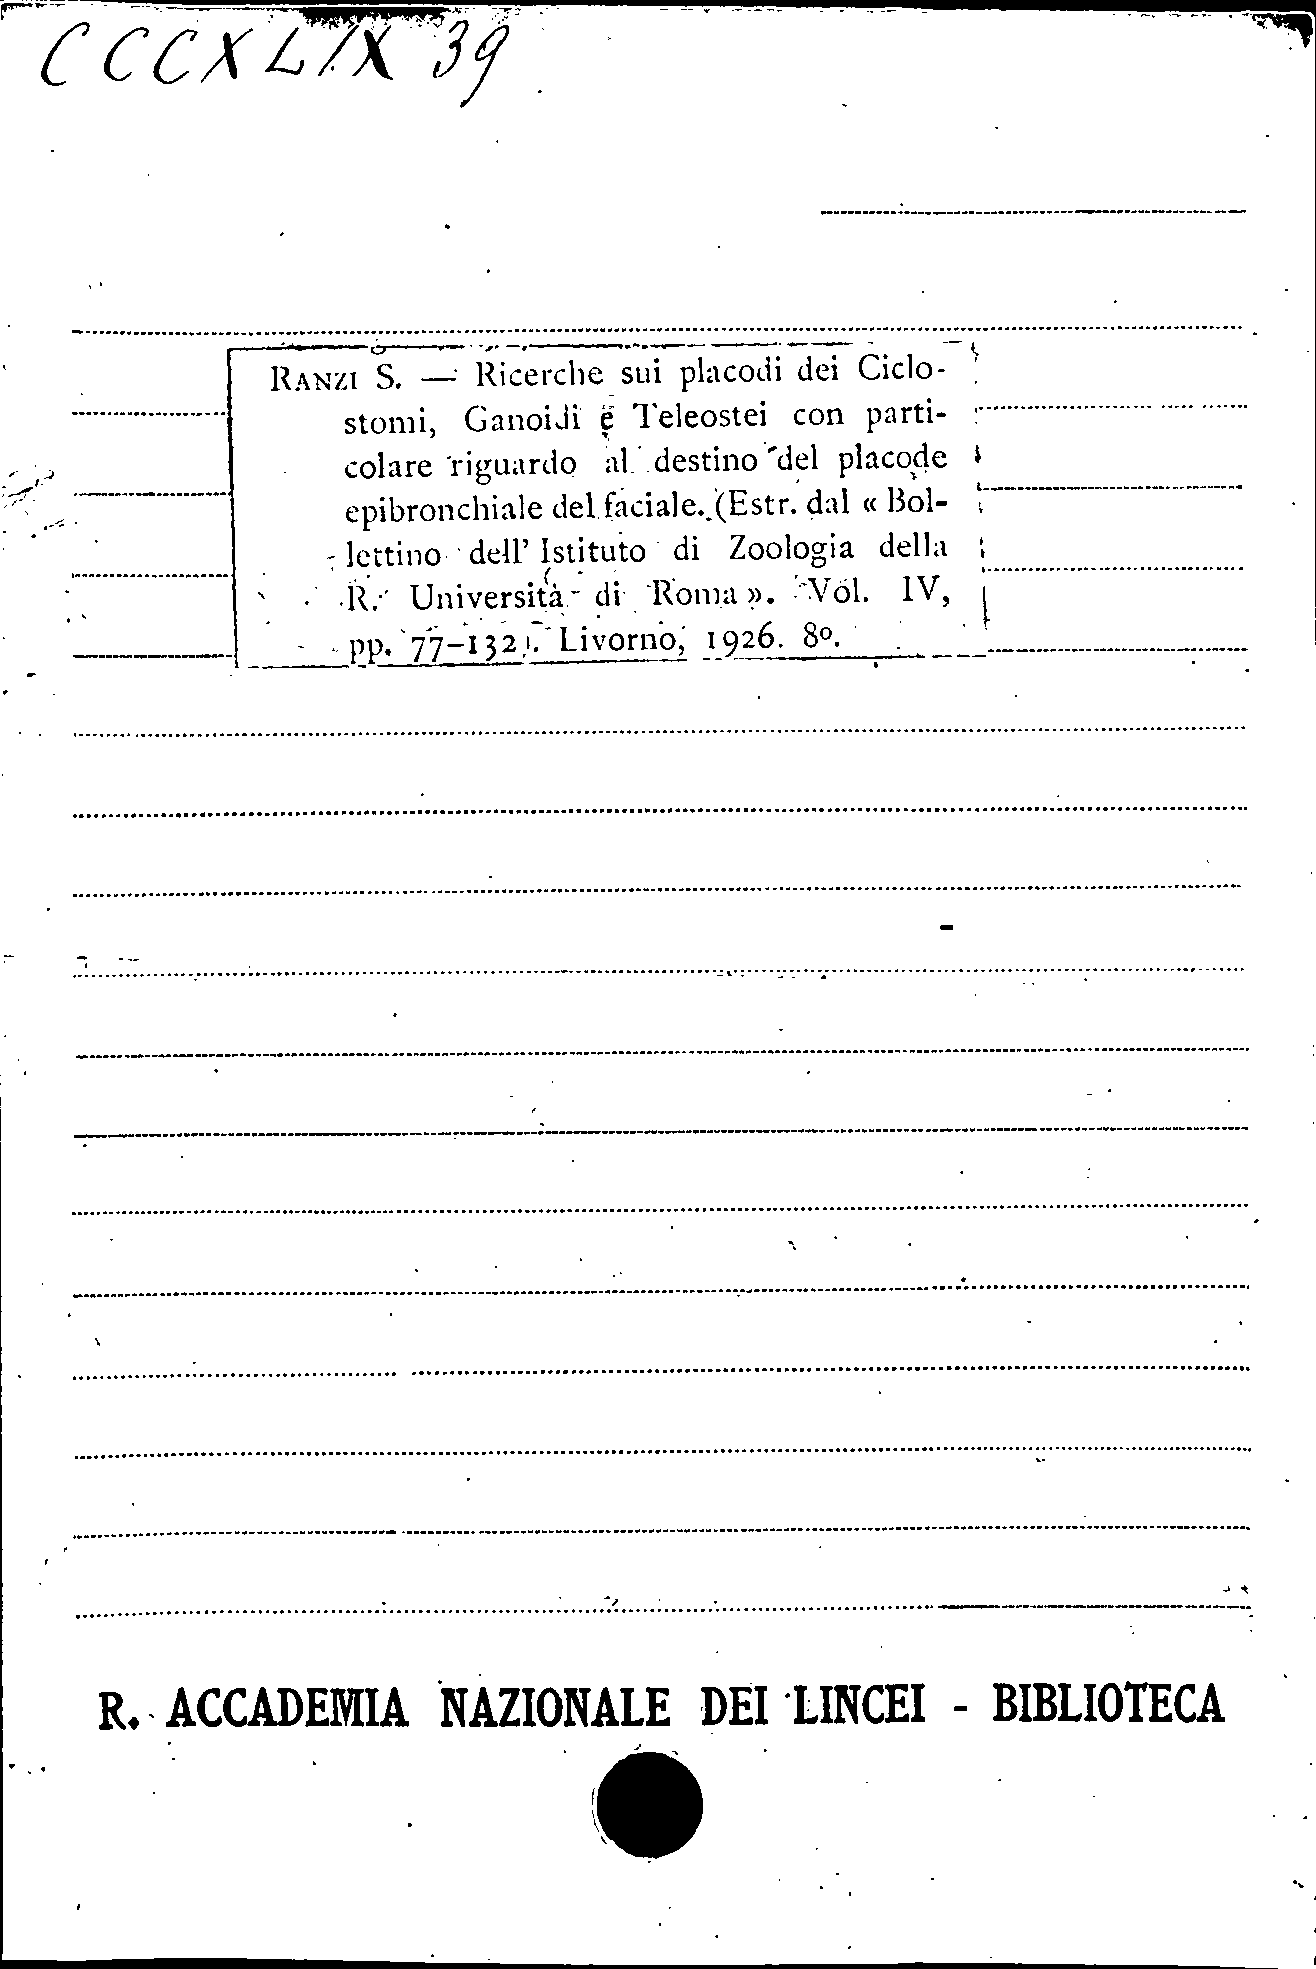 CCCXLIX 39
RANZI S. — Ricerche sui placodi dei Ciclo-
stomi, Ganoidi e Teleostei con parti-
colare riguardo al destino del placode
epibronchiale del faciale. (Estr. dal « Bol-
lettino dell' Istituto di Zoologia della
R. Università di Roma ». Vol. IV,
pp. 77-132). Livorno, 1926. 8º.
R. ACCADEMIA NAZIONALE DEI LINCEI - BIBLIOTECA